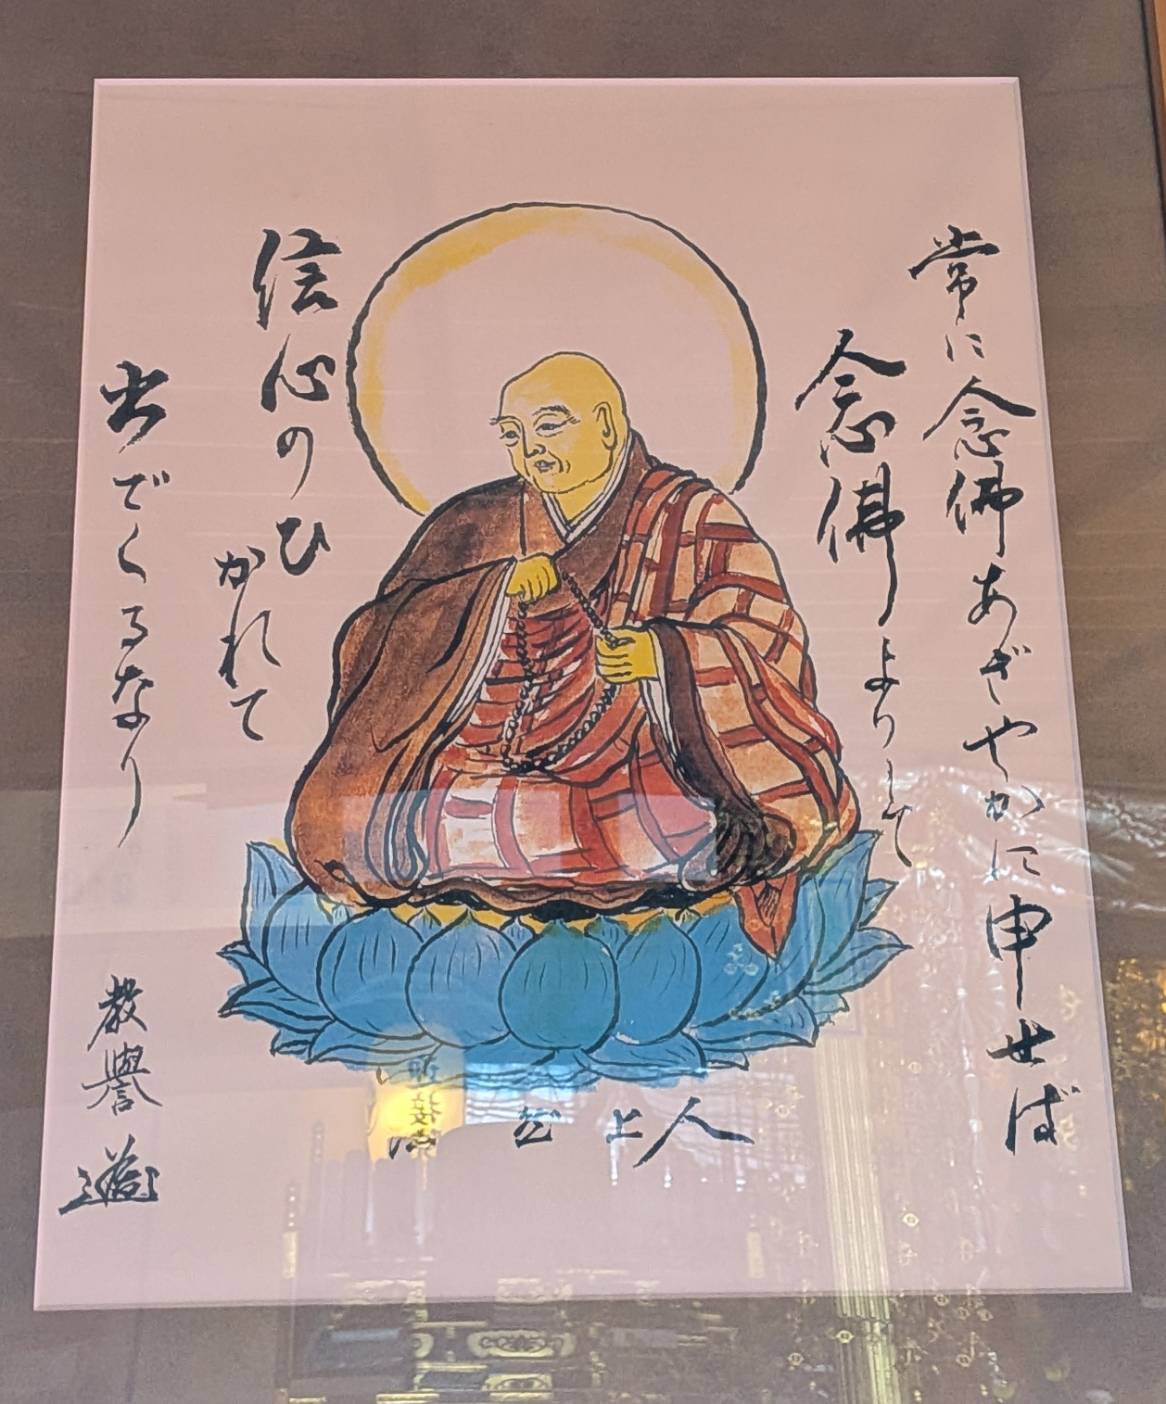 常に念佛あざやかに申せば
念佛よりして
信心のひ
かれて
出でくるなり
上人
教譽